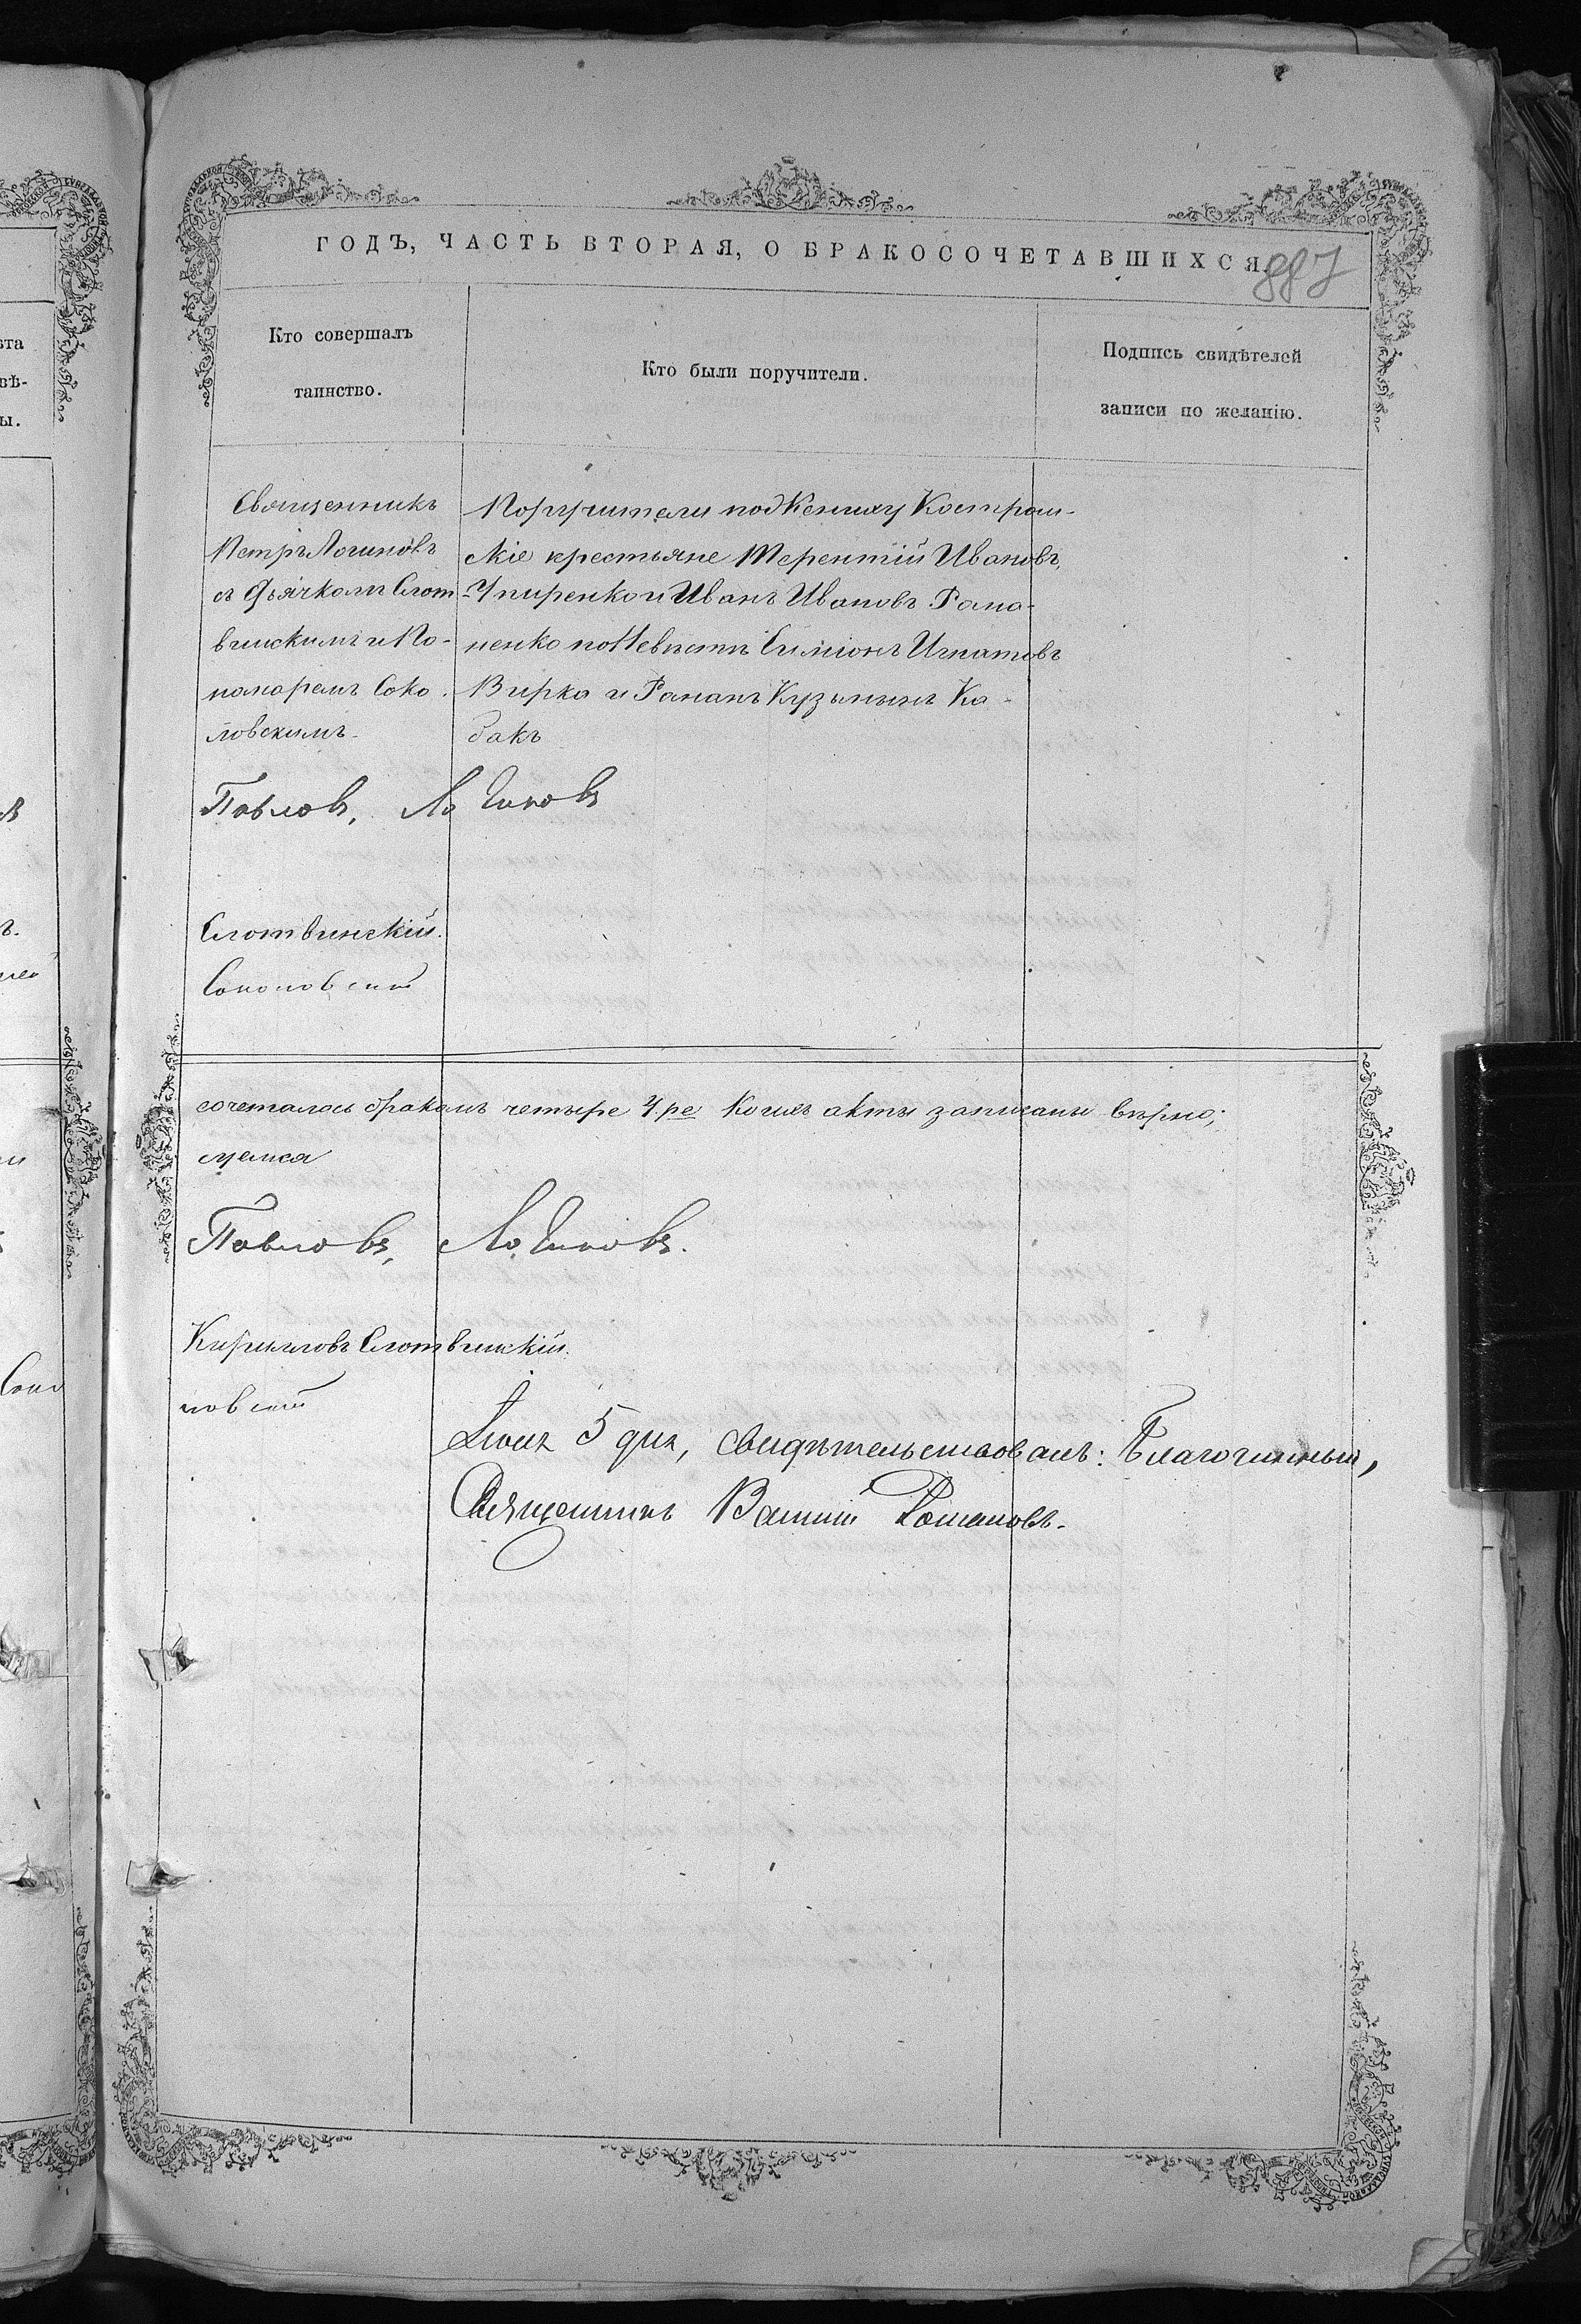 ГОДЪ, ЧАСТЬ ВТОРАЯ, О БРАКОСОЧЕТАВШИХСЯ.
887
Кто совершалъ
таинство.
Кто были поручители.
Подпись свидѣтелей
записи по желанію.
Священникъ
Петръ Логиновъ
съ Дьячкомъ Слот
винскимъ и По-
намаремъ Соко-
ловскимъ
Поручители под Жениху Костром-
скіе крестьяне Терентій Ивановъ
Чпиренко и Иванъ Ивановъ Рома-
ненко по Невѣстѣ Симіонъ Игнатовъ
Вирко и Раманъ Кузьминъ Ка-
бакъ
Павловъ, Логиновъ
Слотвинскій.
Соколовскій
сочеталось бракомъ четыре 4ре коихъ акты записаны вѣрно;
Павловъ, Логиновъ.
Кирилловъ Слотвинскій.
ловскій
5 дня, свидѣтельствовалъ: Благочинный,
Священникъ Романовъ.